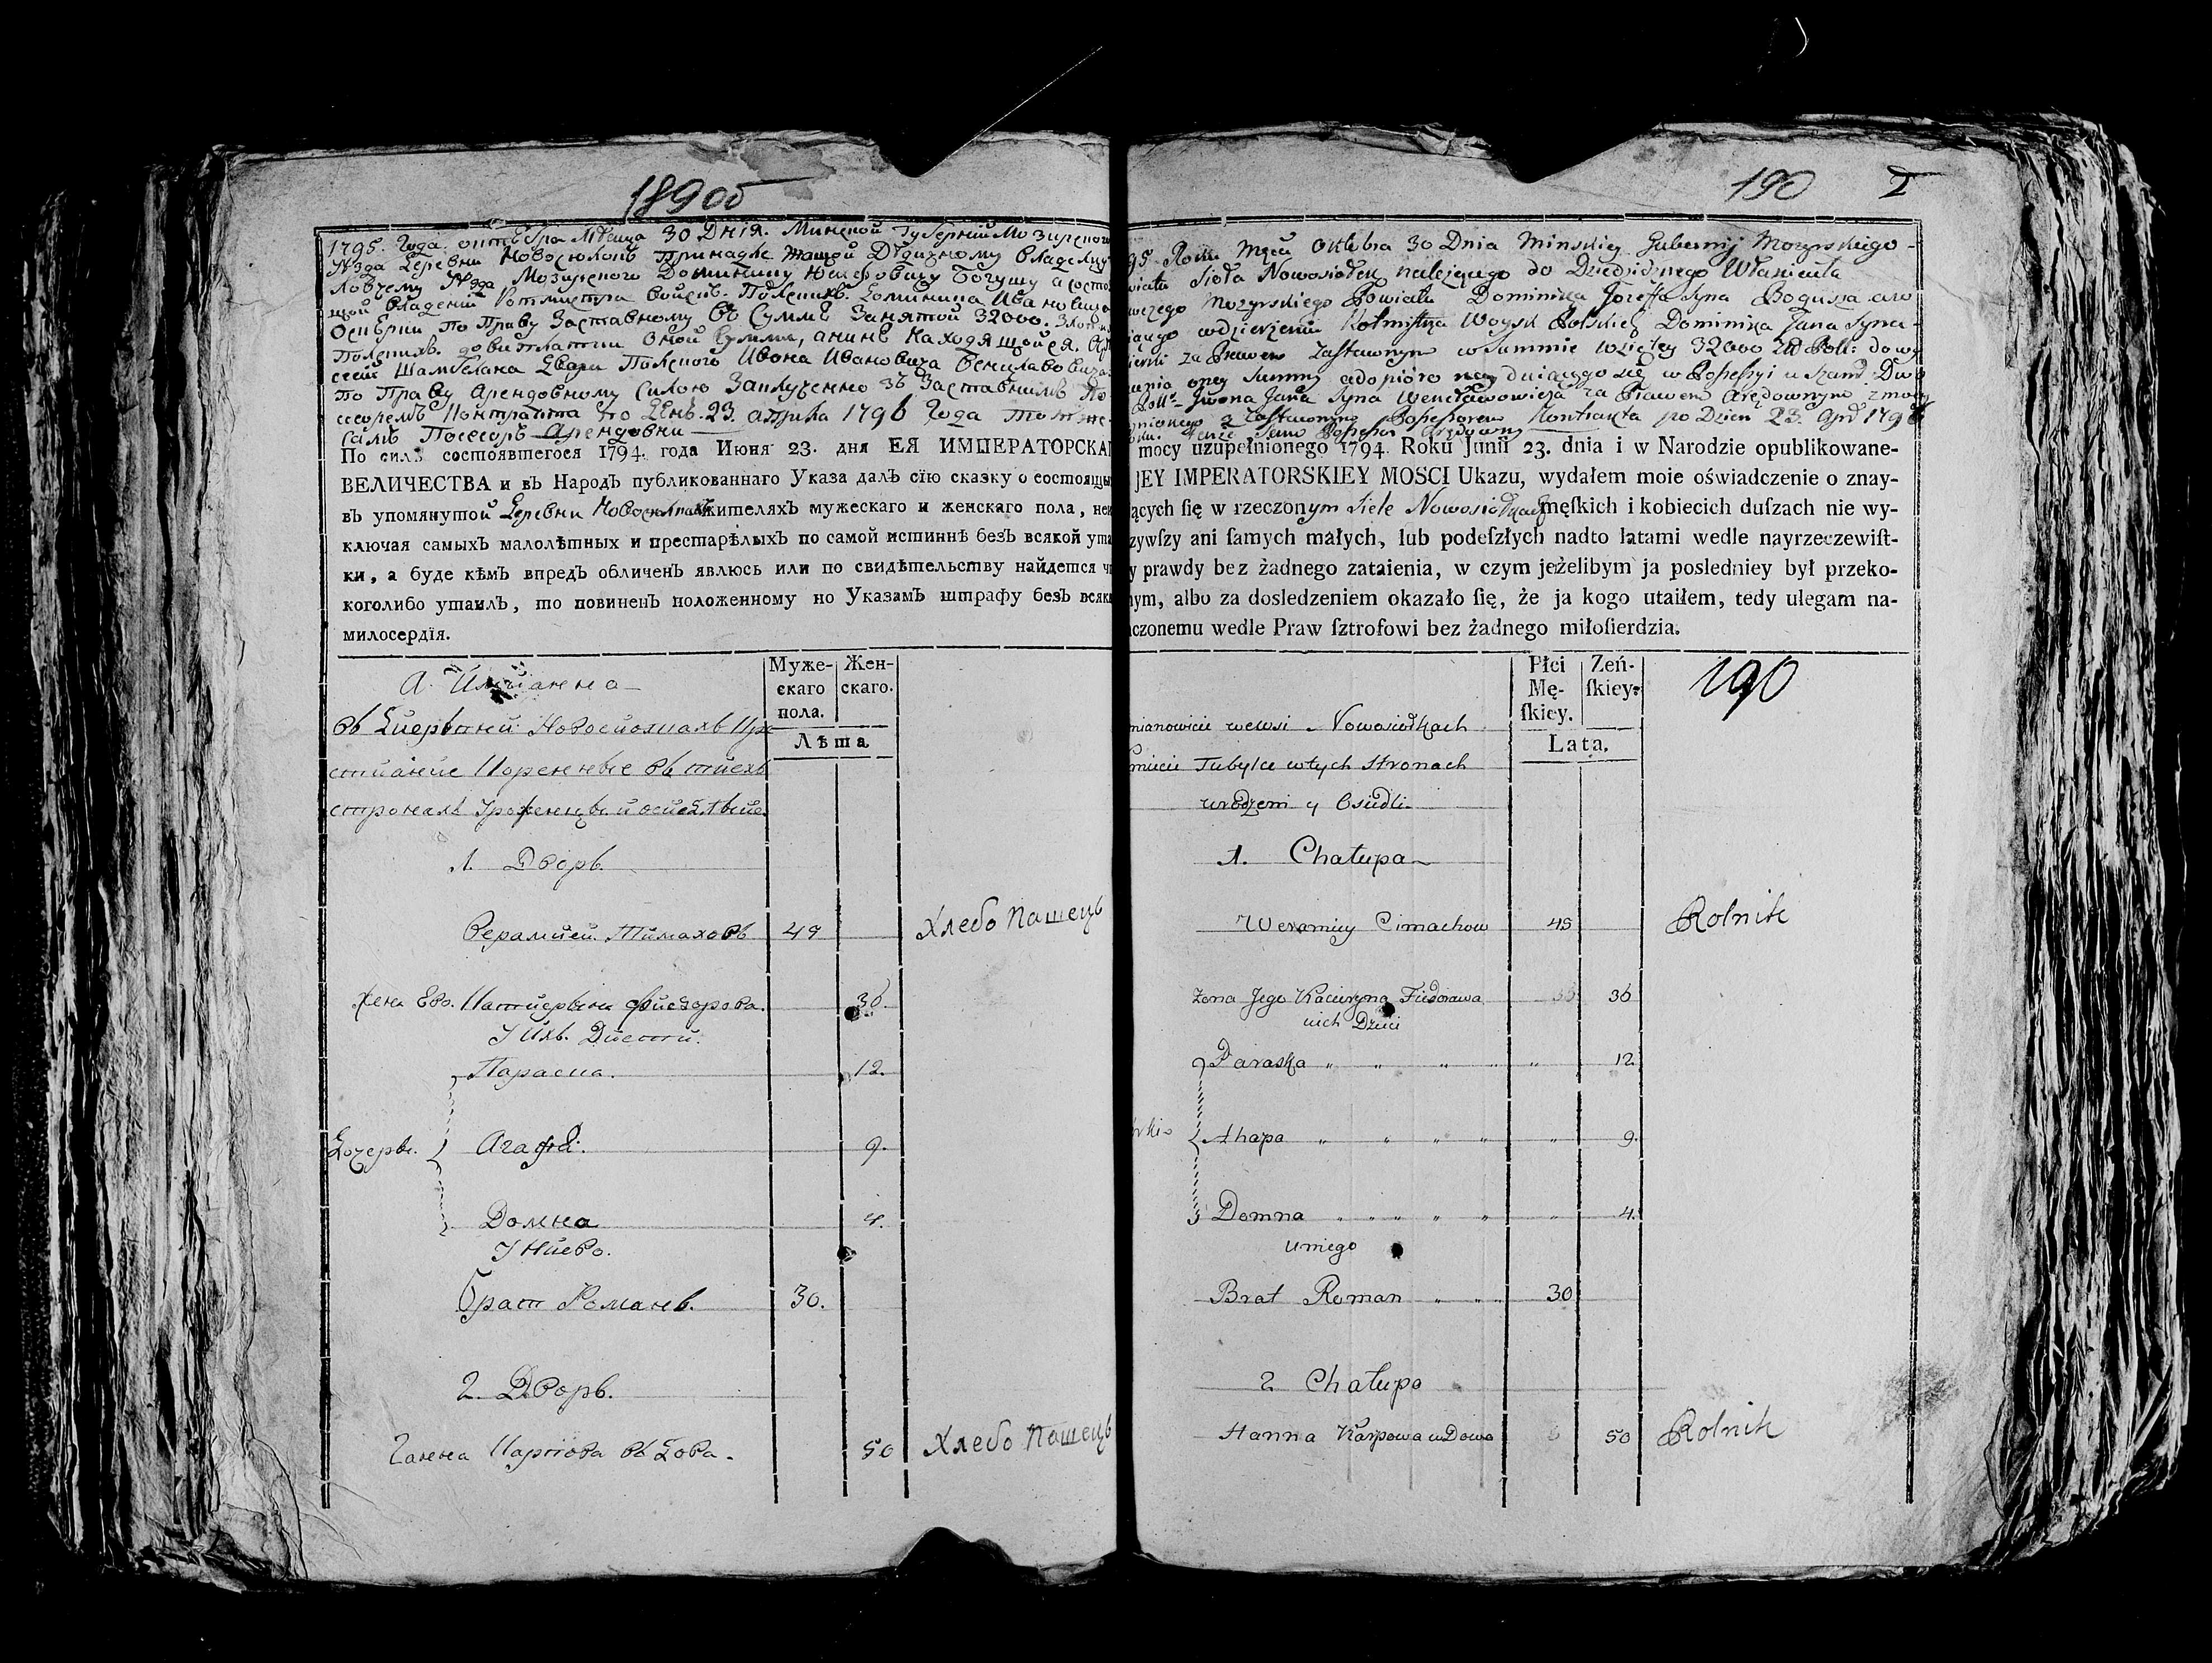 189об
1795. Года октебра Мѣсяца 30 Дня. Минской Губерній Мозирского
Уѣзда Деревни Новоселокъ Принадлежащой Дѣдизному Владелцу
Ловчему Уѣзда Мозирского Доминику Юзефовичу Богушу а состо
щой Владеніи Ротмистра Войскъ Полскихъ Доминика Ивановича
по Праву Заставному въ Сумме Занятой 32000. Злот
Полскихъ до виплати оной Суммы, а нинѣ Находящойся
Шамбеляна Двора Полского Ивана Ивановича Венцлавовича
по Праву Арендовному Силою Заключенно зъ Заставнимъ По
ссесоремъ Контракта по День 23. априля 1796 Года тотже
Самъ Посесоръ Арендовни
По силѣ состоявшегося 1794. года Июня 23. дня ЕЯ ИМПЕРАТОРСКА
ВЕЛИЧЕСТВА и въ Народъ публикованнаго Указа далъ сїю сказку о состоящи
въ упомянутой Деревни Новоселкахъ жителяхъ мужескаго и женскаго пола, неи
ключая самыхъ малолѣтныхъ и престарѣлыхъ по самой истиннѣ безъ всякой ута
ки, а буде кѣмъ впредъ обличенъ явлюсь или по свидѣтельству найдется ч
коголибо утаилъ, то повиненъ положенному по Указамъ штрафу безъ всяк
милосердїя.
Муже- Жен-
скаго скаго.
пола.
Лѣта
А Имянно
въ Новосиолкахъ
Коренные въ
сторонахъ Уроженцы и
1. Дворъ.
Верамией Тимаховъ 49 Хлебо Пашецъ
Жена Его. Катиерына Фиедорова. 36.
У Ихъ. Диети.
Параска. 12.
Дочеры. Агафа. 9.
Домна 4.
У Ниево.
Брат Романъ. 30.
2. Дворъ.
Ганна Карпова Вдова. 50 Хлебо Пашецъ
190 2
95 Roku Mca Oktobra 30 Dnia Minskiey Gubernij Mozyrskiego
wiatu Sioła Nowosiołek należącego do Dziedzicznego Własciciela
wczego Mozyrskiego Powiatu Dominika Jozeffa Syna Bogusza a zo
iącego w dzierżeniu Rotmistrza Woysk Polskich Dominika Jana Syna
za Prawem Zastawnym w Summie wziętey 32000 Zł Poll: do wy
onej Summy w Possessyi Szamb: Dwo
Poll: Iwona Jana Syna Wencławowicza za Prawem Arędownym z mocy
z Zastawnym Possessorem Kontraktu po Dzien 23. Apr 1796
Possessor Arędowny
mocy uzupełnionego 1794. Roku Junii 23. dnia i w Narodzie opublikowane-
JEY IMPERATORSKIEY MOSCI Ukazu, wydałem moie oświadczenie o znay-
ących ſię w rzeczonym Siele Nowosiołkach męſkich i kobiecich duſzach nie wy-
zywſzy ani ſamych małych, lub podeſzłych nadto latami wedle nayrzeczewiſt-
y prawdy bez żadnego zataienia, w czym jeżelibym ja posledniey był przeko-
ym, albo za dosledzeniem okazało ſię, że ja kogo utaiłem, tedy ulegam na-
czonemu wedle Praw ſztrofowi bez żadnego miłoſierdzia.
Płci Zeń-
Mę- ſkiey.
ſkiey.
Lata.
190
mianowicie we wsi Nowosiołkach
Tubylce w tych Stronach
urodzeni y Osiedli
1. Chałupa
Weramiey Cimachow 49 Rolnik
Zona Jego Kacieryna Fiedorawa 36
u ich Dzieci
Paraska " " " " " 12
Ahapa " " " " " 9.
Domna " " " " " " 4.
u niego
Brat Roman " " " 30
2 Chałupa
Hanna Karpowa wDowa 50 Rolnik